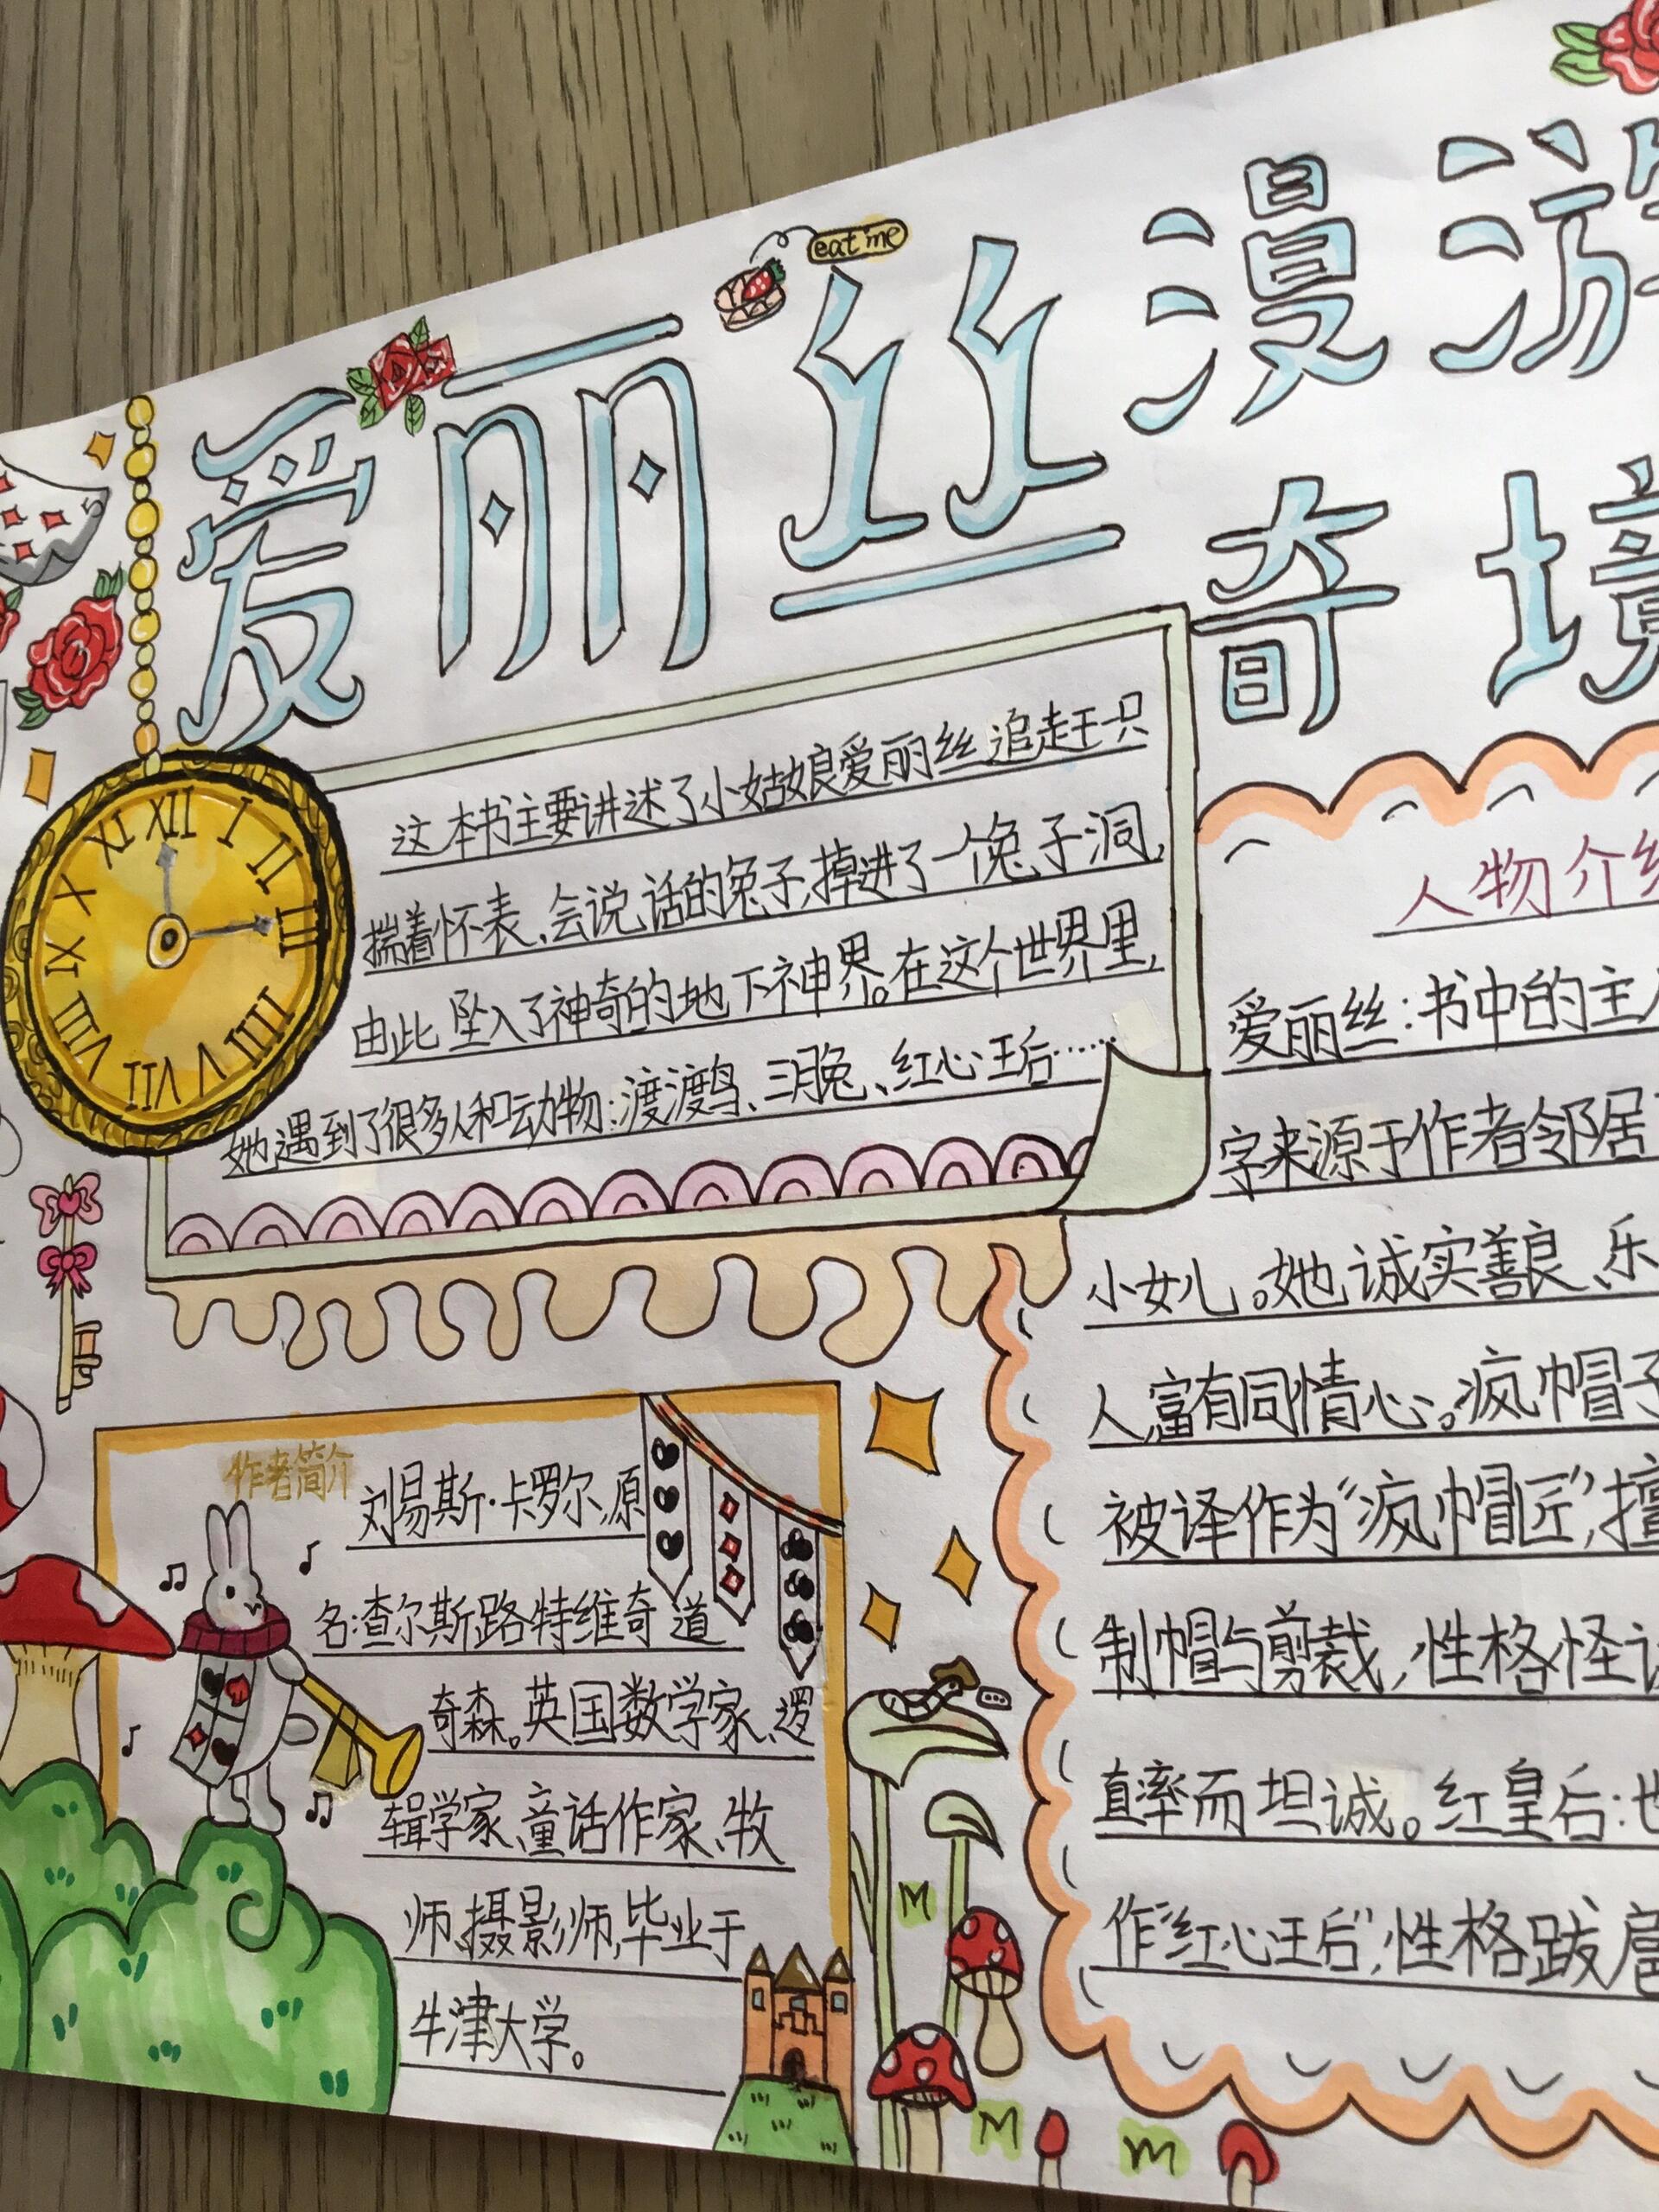 eat me
爱丽丝漫游
奇境
这本书主要讲述了小姑娘爱丽丝追赶一只
揣着怀表、会说话的兔子,掉进了一个兔子洞,
由此坠入了神奇的地下神界。在这个世界里,
她遇到了很多人和动物:渡渡鸟、三月兔、红心王后……
XII I II III IIII V VI VII VIII IX X XI
作者简介
刘易斯·卡罗尔,原
名:查尔斯路特维奇道
奇森。英国数学家、逻
辑学家、童话作家、牧
师、摄影师,毕业于
牛津大学。
人物介
爱丽丝:书中的主
字来源于作者邻居
小女儿。她诚实善良、乐
人,富有同情心。疯帽子
被译作为“疯帽匠”,擅
制帽与剪裁,性格怪
直率而坦诚。红皇后:也
作“红心王后”,性格跋扈